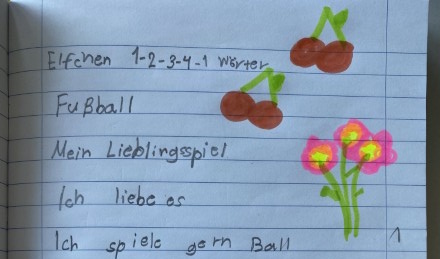 Elfchen 1-2-3-4-1 Wörter
Fußball
Mein Lieblingsspiel
Ich liebe es
Ich spiele gern Ball
1